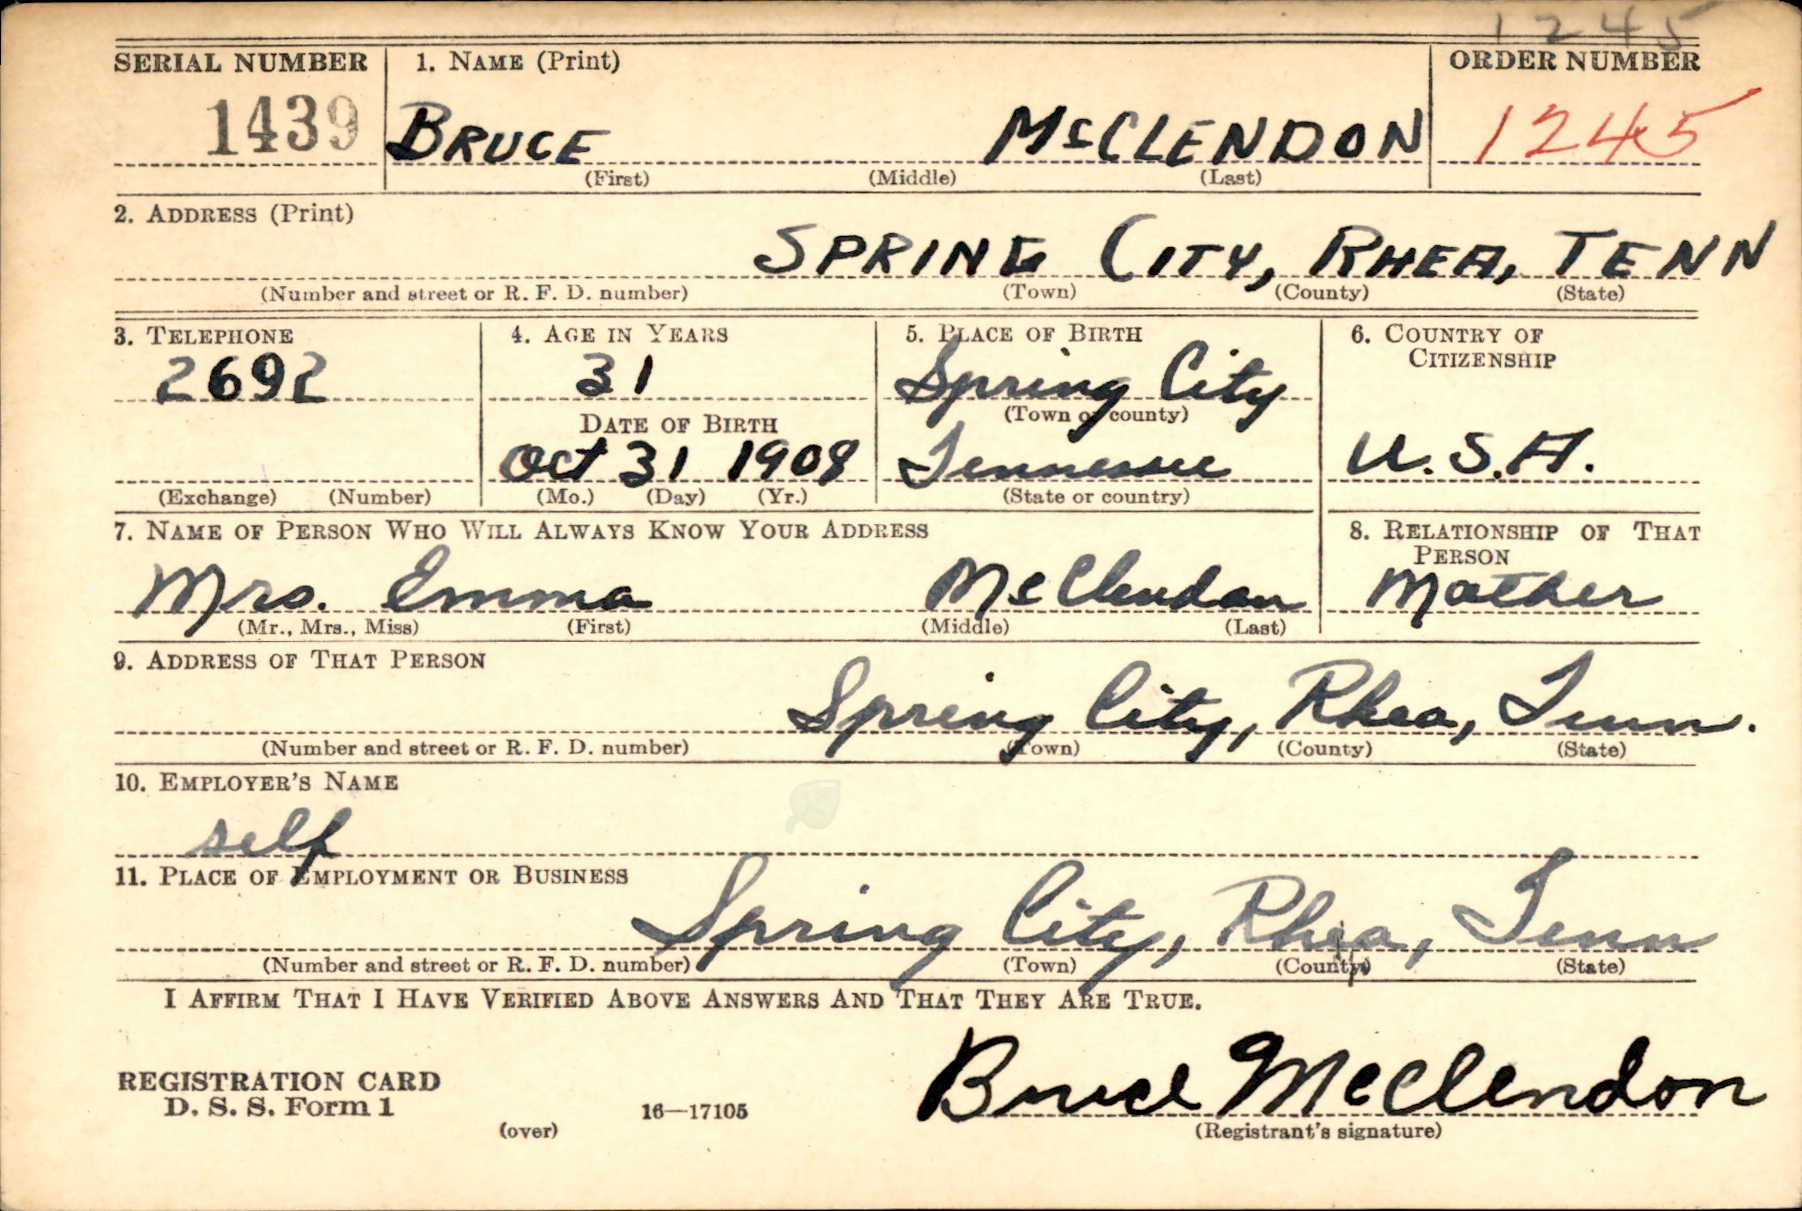 1245
SERIAL NUMBER 1. NAME (Print) ORDER NUMBER
1439 BRUCE McCLENDON 1245
(First) (Middle) (Last)
2. ADDRESS (Print)
SPRING CITY, RHEA, TENN
(Number and street or R. F. D. number) (Town) (County) (State)
3. TELEPHONE 4. AGE IN YEARS 5. PLACE OF BIRTH 6. COUNTRY OF
CITIZENSHIP
2692 31 Spring City
(Town or county)
DATE OF BIRTH
Oct 31 1908 Tennessee U.S.A.
(Exchange) (Number) (Mo.) (Day) (Yr.) (State or country)
7. NAME OF PERSON WHO WILL ALWAYS KNOW YOUR ADDRESS 8. RELATIONSHIP OF THAT
PERSON
Mrs. Emma McClendon Mother
(Mr., Mrs., Miss) (First) (Middle) (Last)
9. ADDRESS OF THAT PERSON
Spring City, Rhea, Tenn.
(Number and street or R. F. D. number) (Town) (County) (State)
10. EMPLOYER'S NAME
self
11. PLACE OF EMPLOYMENT OR BUSINESS
Spring City, Rhea, Tenn
(Number and street or R. F. D. number) (Town) (County) (State)
I AFFIRM THAT I HAVE VERIFIED ABOVE ANSWERS AND THAT THEY ARE TRUE.
Bruce McClendon
REGISTRATION CARD
D. S. S. Form 1 16—17105
(over) (Registrant's signature)